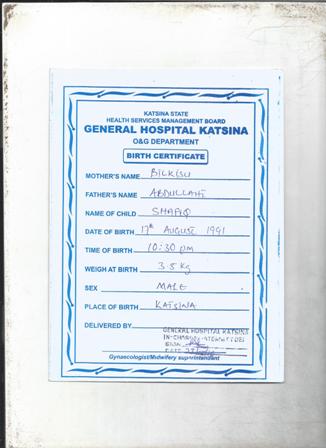 KATSINA STATE
HEALTH SERVICES MANAGEMENT BOARD
GENERAL HOSPITAL KATSINA
O&G DEPARTMENT
BIRTH CERTIFICATE
MOTHER'S NAME BILKISU
FATHER'S NAME ABDULLAHI
NAME OF CHILD SHAFIQ
DATE OF BIRTH 17th AUGUST 1991
TIME OF BIRTH 10:30 pm
WEIGH AT BIRTH 3.5 kg
SEX MALE
PLACE OF BIRTH KATSINA
DELIVERED BY GENERAL HOSPITAL KATSINA
Gynaecologist/Midwifery superintendant